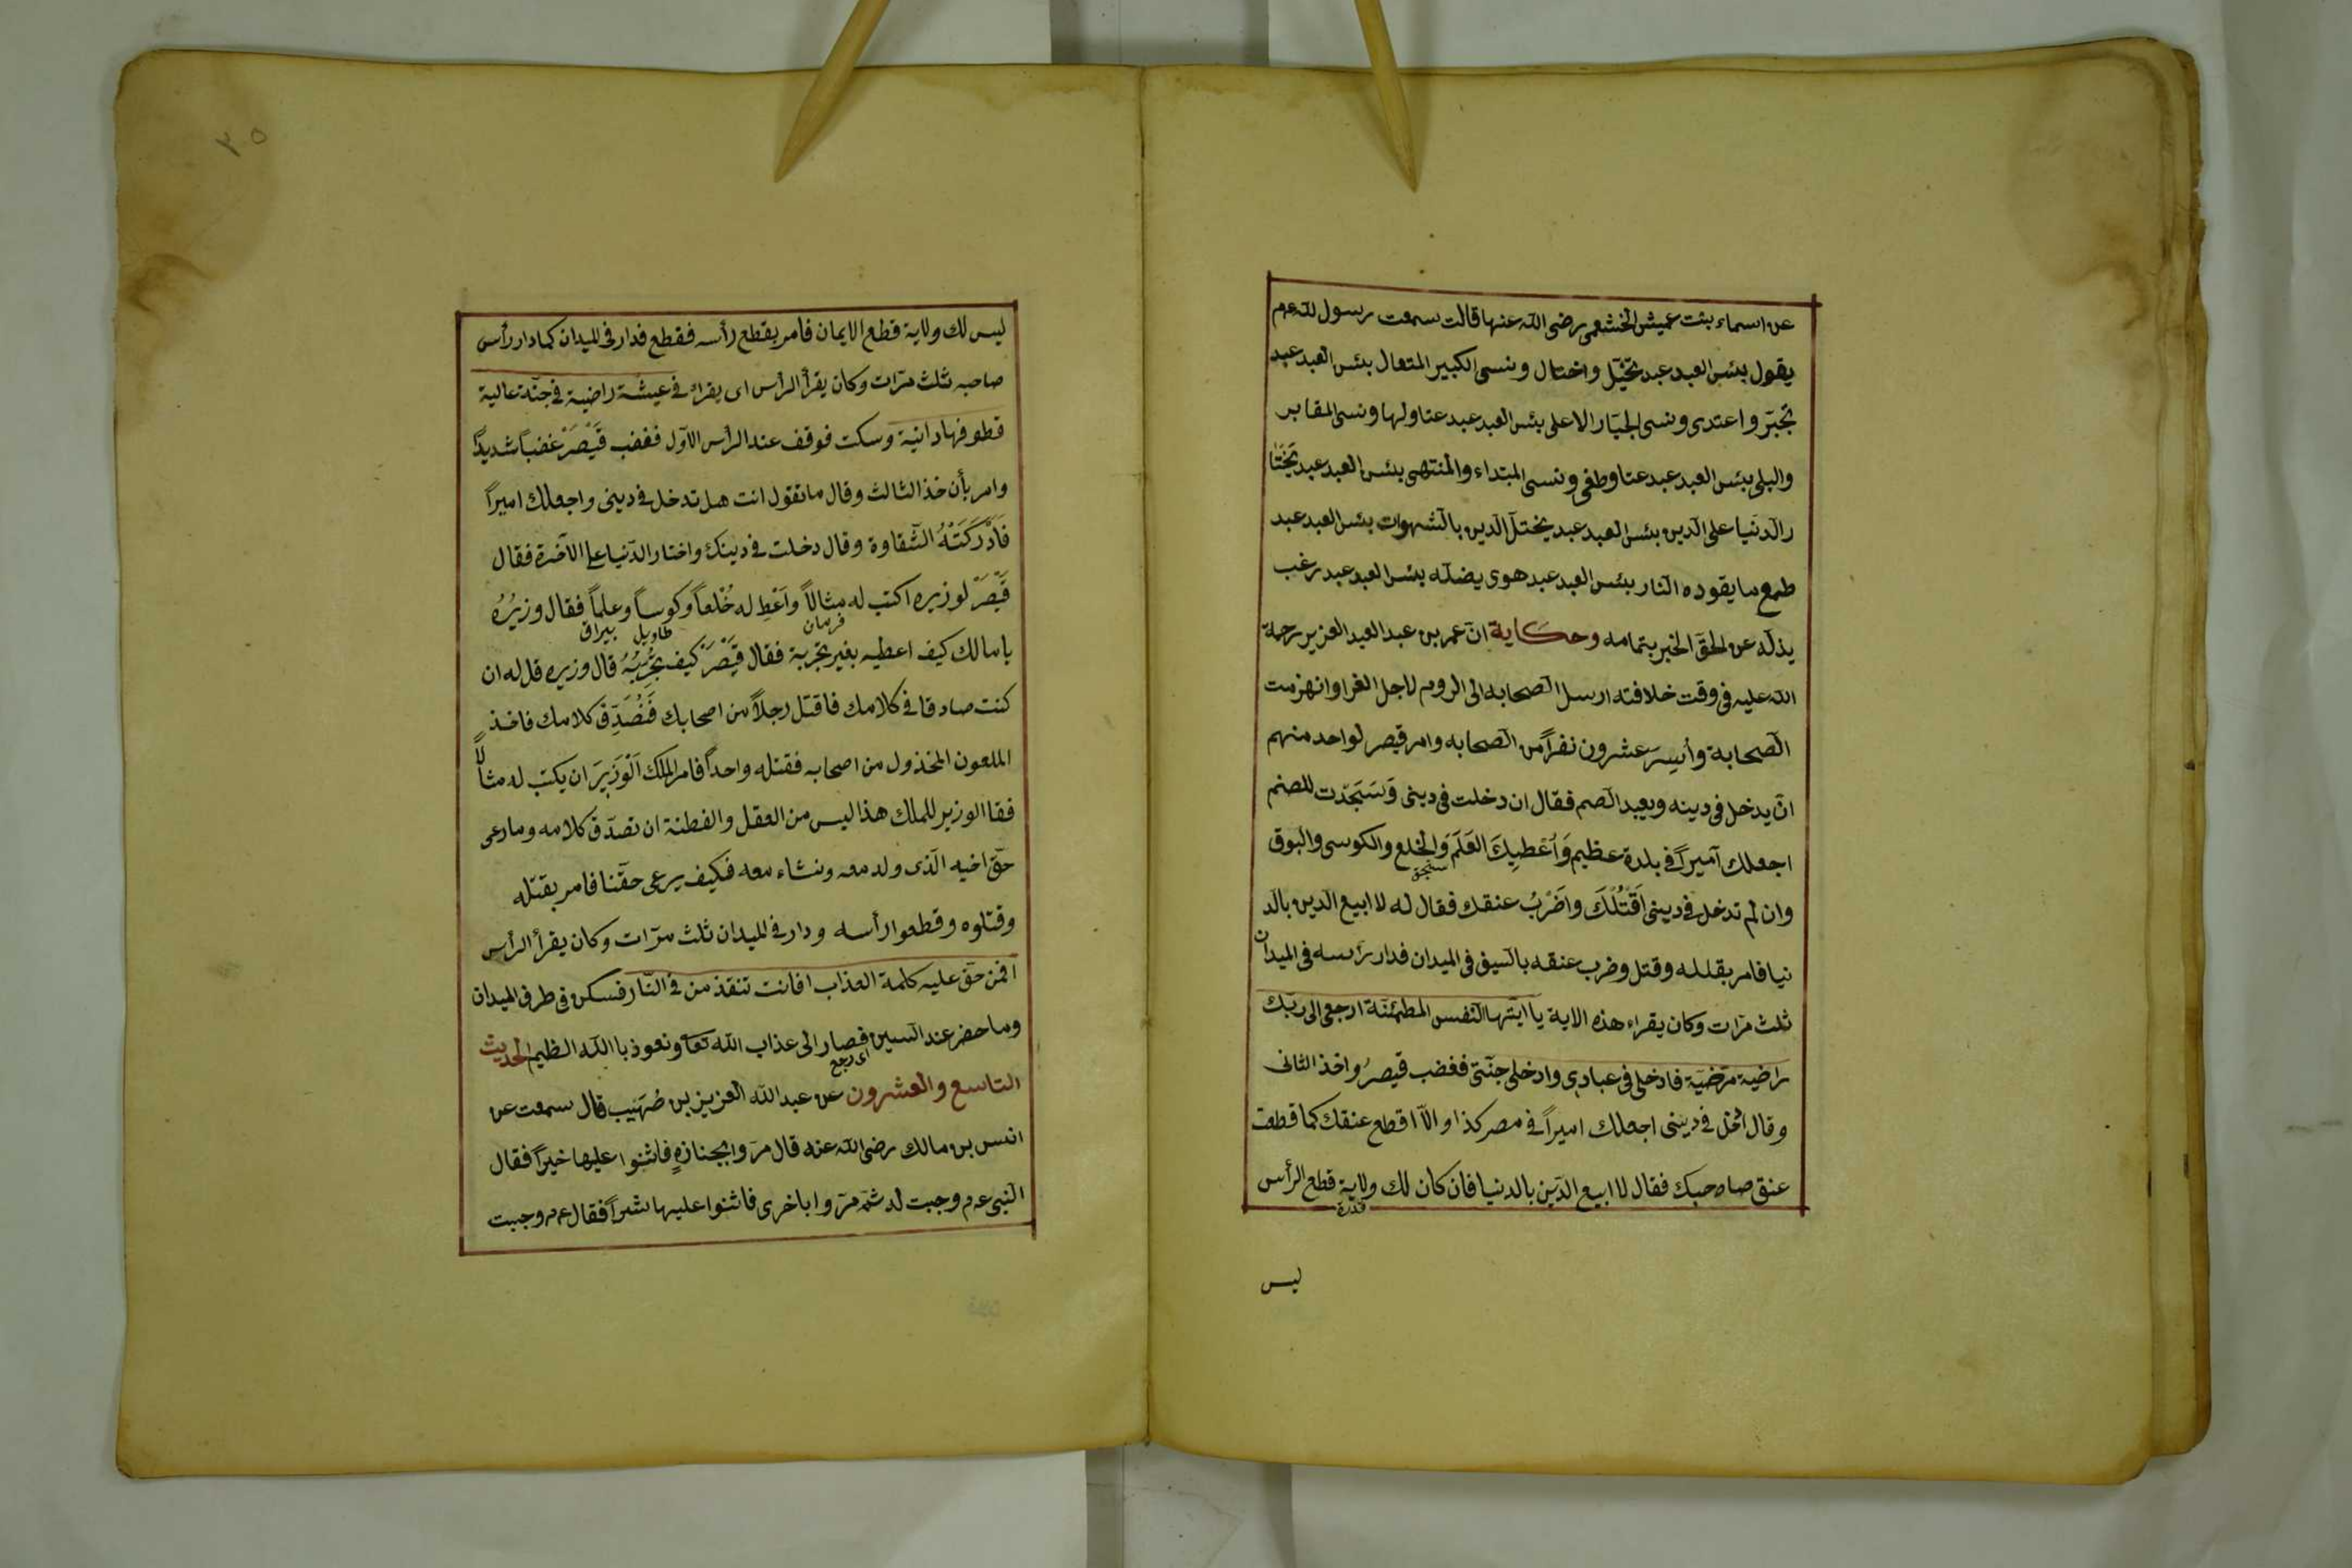 عن اسماء بنت عميش الخشعمى رضى الله عنها قالت سمعت رسول الله عم
يقول بئس العبد عبد تخيّل واختال ونسى الكبير المتعال بئس العبد عبد
تجبّر واعتدى ونسى الجبّار الاعلى بئس العبد عبد عتا ولها ونسى المقابر
والبلى بئس العبد عبد عتا وطغى ونسى المبتداء والمنتهى بئس العبد عبد تختا
ر الدنيا على الدين بئس العبد عبد يختل الدين بالشهوات بئس العبد عبد
طمع ما يقوده النار بئس العبد عبد هوى يضله بئس العبد عبد رغب
يذله عن الحق الخبر بتمامه وحكاية انّ عمر بن عبد العبد العزيز رحمة
الله عليه فى وقت خلافته ارسل الصحابه الى الروم لاجل الغزا وانهزمت
الصحابة وأسِر عشرون نفراً من الصحابه وامر قيصر لواحد منهم
انّ يدخل فى دينه ويعبد الصم فقال ان دخلت فى دينى وَسَجَدت للصنم
اجعلك آميراً فى بلدة عظيم وَاُعْطيِكَ العَلَمَ وَالخلع والكوسى والبوق
سنجق
وان لم تدخل فى دينى اَقْتُلُكَ واَضْرُبُ عنقك فقال له لا ابيع الدين بالد
نيا فامر بقلله وقتل وضرب عنقه بالسيف فى الميدان فدار رئسه فى الميدان
ثلث مرّات وكان يقراء هذه الاية يا ايتها النفس المطمئنة ارجعى الى ربّك
راضية مرضيّة فادخلى فى عبادى وادخلى جنّتى فغضب قيصرُ واخذ الثانى
وقال اُدخل فى دينى اجعلك اميراً فى مصر كذا والّا اقطع عنقك كما قطعت
عنق صاحبك فقال لا ابيع الدّين بالدنيا فان كان لك ولاية قطع الرأس
قدرة
ليس
٢٥
ليس لك ولاية قطع الايمان فامر بقطع رأسه فقطع فدار فى الميدان كما دار رأس
صاحبه ثلث مرّات وكان يقرأ الرأس اى يقراء فى عيشة راضية فى جنّة عالية
قطوفها دانية وسكت فوقف عند الرأس الاوّل فغضب قَيْصَرْ غضباً شديداً
وامر بأن خذ الثالث وقال ما تقول انت هل تدخل فى دينى واجعلك اميراً
فَادْرَكَتْهُ الشّقاوة وقال دخلت فى دينك واختار الدّنيا على الاخرة فقال
قَيْصَرَ لوزيره اكتب له مثالاً واَعْطِ له خُلْعاً وكوساً وعلماً فقال وزيرُهُ
فرمان طاويل بيراق
يا مالك كيف اعطيه بغير تجربة فقال قَيْصَرَ كيف تجُرِّبُهُ قال وزيره قل له ان
كنت صادقا فى كلامك فاقتل رجلاً من اصحابك فَنُصَدِّق كلامك فاخذ
الملعون المخذول من اصحابه فقتله واحداً فامر الملك اَلْوَزيِرَ ان يكتب له مثالاً
فقا الوزير للملك هذا ليس من العقل والفطنة ان تصدّق كلامه وما رعى
حقّ اخيه الّذى ولد معه ونشاء معه فكيف يرعى حقّنا فامر بقتله
وقتلوه وقطعوا رأسه ودار فى الميدان ثلث مرّات وكان يقرأ الرأس
افمن حقّ عليه كلمة العذاب افانت تنقذ من فى النّار فسكن فى طرف الميدان
وما حضر عند السين فصار الى عذاب الله تعا ونعوذ با الله الظيم الحديث
اى رجع
التاسع والعشرون عن عبد الله العزيز بن صُهَيب قال سمعت عن
انس بن مالك رضى الله عنه قال مرّوا بجنازةٍ فاثنوا عليها خيراً فقال
النبى عم وجبت له ثمّ مرّوا باخرى فاثنوا عليها شراً فقال عم وجبت